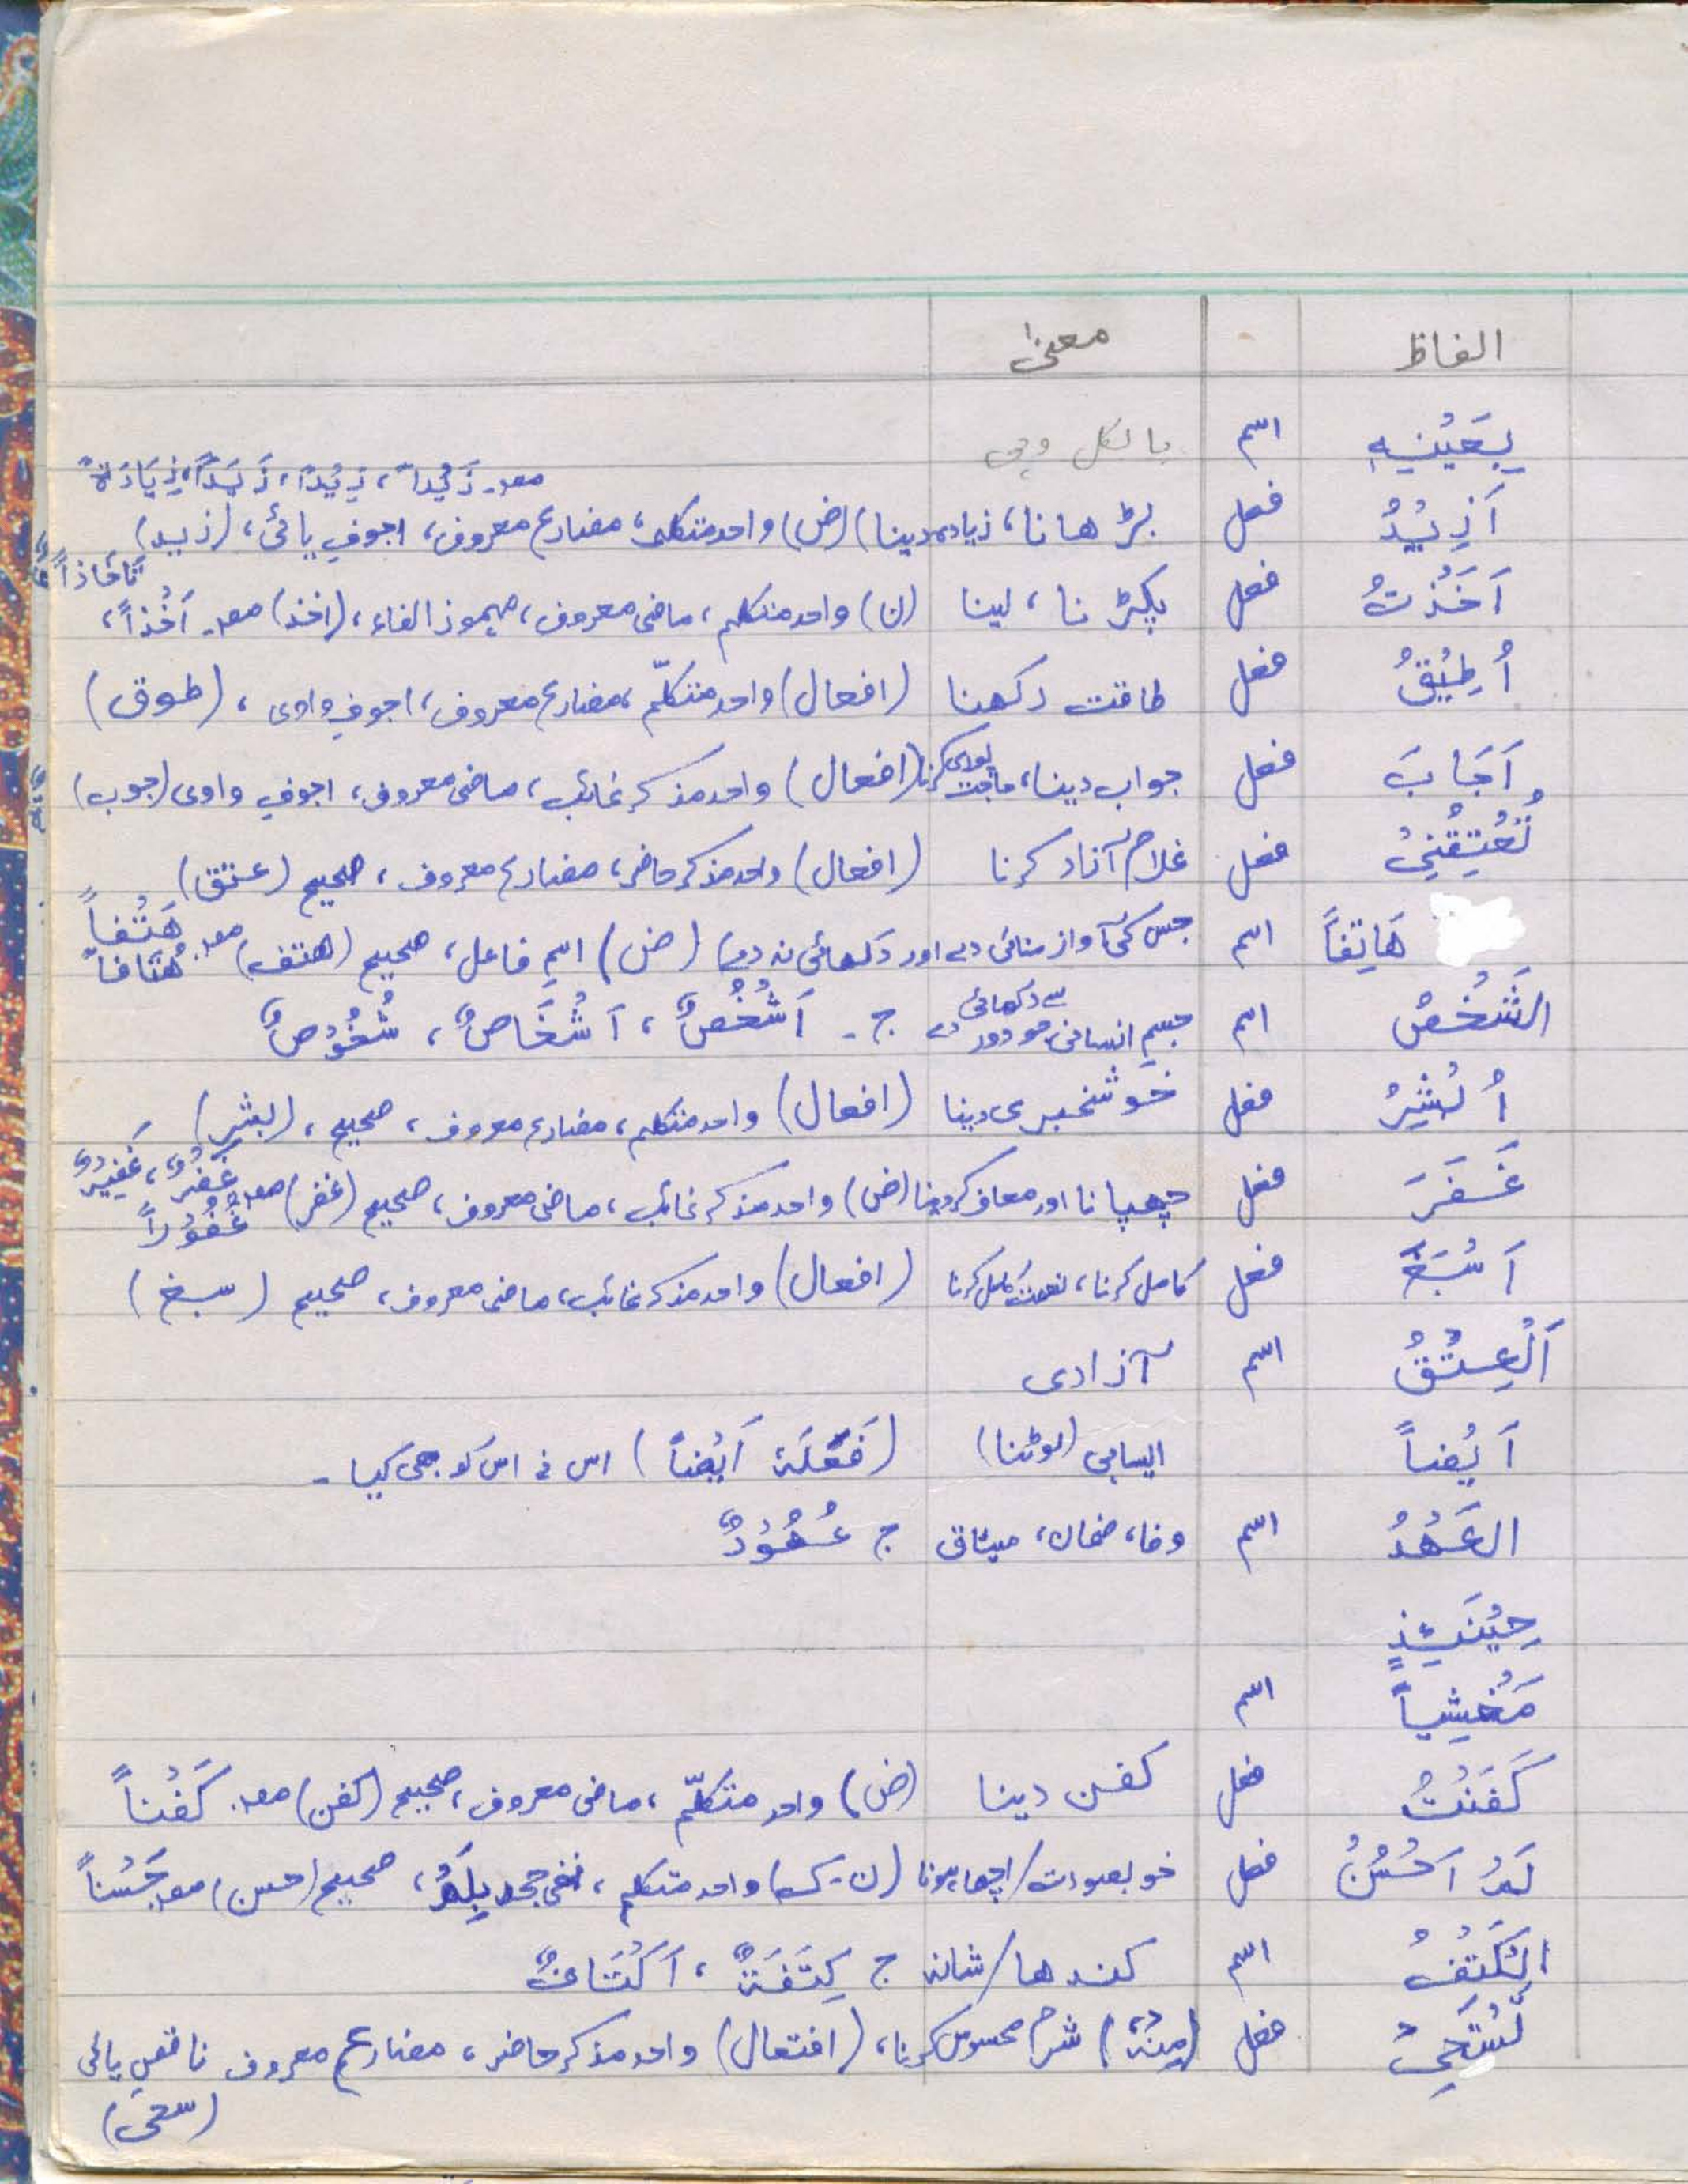 الفاظ معنیٰ
بِعَیْنِہٖ اسم بالکل وہی
مصد۔ زَیْداً، زِیْداً، زَیَداً، زِیَادَۃً
اَزِیْدُ فعل بڑھانا، زیادہ دینا (ض) واحد متکلم، مضارع معروف، اجوفِ یائی، (زید)
اَخَذْتُ فعل پکڑنا، لینا (ن) واحد متکلم، ماضی معروف، مہموز الفاء، (اخذ) مصد۔ اَخْذاً، تَاخَاذاً
اُطِیْقُ فعل طاقت رکھنا (افعال) واحد متکلّم، مضارع معروف، اجوفِ واوی، (طوق)
اَجَابَ فعل جواب دینا، حاجت پوری کرنا (افعال) واحد مذکر غائب، ماضی معروف، اجوفِ واوی (جوب)
تُعْتِقُنِیْ فعل غلام آزاد کرنا (افعال) واحد مذکر حاضر، مضارع معروف، صحیح (عتق)
ھَاتِفاً اسم جس کی آواز سنائی دے اور دکھائی نہ دے (ض) اسمِ فاعل، صحیح (ھتف) مصد۔ ھَتْفاً ھُتَافاً
الشَّخْصُ اسم جسمِ انسانی جو دور سے دکھائی دے ج۔ اَشْخُصٌ، اَشْخَاصٌ، شُخُوْصٌ
اُبْشِرُ فعل خوشخبری دینا (افعال) واحد متکلم، مضارع معروف، صحیح، (بشر)
غَفَرَ فعل چھپانا اور معاف کر دینا (ض) واحد مذکر غائب، ماضی معروف، صحیح (غفر) مصد۔ غَفْرٌ، غَفِیْرٌ غُفُوْراً
اَسْبَغَ فعل کامل کرنا، نعمت مکمل کرنا (افعال) واحد مذکر غائب، ماضی معروف، صحیح (سبغ)
اَلْعِتْقُ اسم آزادی
اَیْضاً ایسا ہی (لوٹنا) (فَعَلَہٗ اَیْضاً) اس نے اس کو بھی کیا۔
العَھْدُ اسم وفا، ضمان، میثاق ج عُھُوْدٌ
حِیْنَئِذٍ
مَخْشِیاً اسم
کَفَنْتُ فعل کفن دینا (ض) واحد متکلّم، ماضی معروف، صحیح (کفن) مصد۔ کَفْناً
لَمْ اَحْسُنْ فعل خوبصورت/اچھا ہونا (ن۔ک) واحد متکلم، نفی جحد بِلَمْ، صحیح (حسن) مصد حَسْناً
الْکَتِفُ اسم کندھا/شانہ ج کِتَفَۃٌ، اَکْتَافٌ
تَسْتَحِیْ فعل (مِنْہُ) شرم محسوس کرنا، (افتعال) واحد مذکر حاضر، مضارع معروف ناقصِ یائی
(سحی)